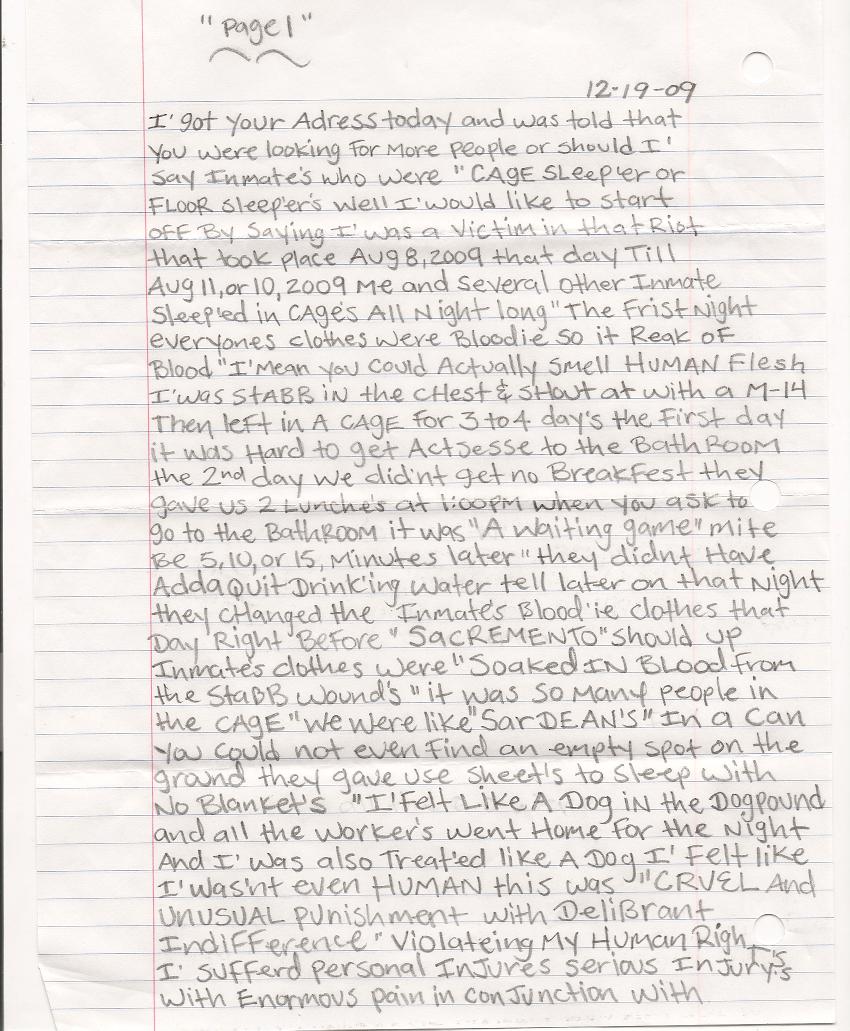 "Page 1"
12-19-09
I' got your Adress today and was told that
you were looking for More people or should I'
say Inmate's who were "CAGE SLeep'er or
FLOOR sleep'er's well I'would like to start
OFF By Saying I'was a Victim in that Riot
that took place Aug 8, 2009 that day Till
Aug 11, or 10, 2009 Me and several other Inmate
Sleep'ed in CAge's All Night long "The Frist Night
everyones clothes were Bloodie so it Reak OF
Blood "I'Mean you could Actually smell HUMAN Flesh
I'was STABB in the cHest & sHout at with a M-14
Then left in A CAGE for 3 to 4 day's the First day
it was Hard to get Actsesse to the BathROOM
the 2nd day we did'nt get no BreakFest they
gave us 2 Lunche's at 1:00PM when you ask to
go to the BathROOM it was "A waiting game" mite
Be 5, 10, or 15, Minutes later "they didnt Have
AddaQuit Drink'ing water tell later on that Night
they cHanged the Inmate's Blood'ie clothes that
Day Right Before "SacREMENTO" should up
Inmate's clothes were "Soaked IN BLood From
the StaBB wound's "it was so Many people in
the CAGE "We were like "Sar DEAN'S" In a Can
You could not even Find an empty spot on the
ground they gave use sheet's to sleep with
No Blanket's "I'Felt Like A Dog in the Dogpound
and all the worker's went Home For the Night
And I' was also Treat'ed like A Dog I' Felt like
I'was'nt even HUMAN this was "CRUEL And
UNUSUAL punishment with DeliBrant
IndiFFerence" Violateing My Human Righ T's
I' sufferd personal Injures serious Injury's
with Enormous pain in conjunction with